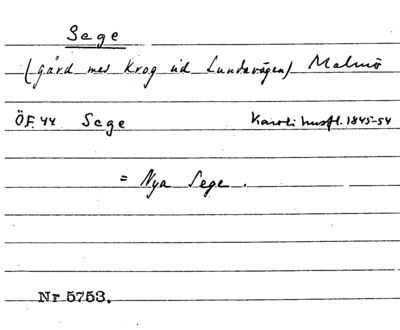 Sege
(gård med Krog vid Lundavägen) Malmö
Ö.F. 44 Sege Karoli husfl. 1845-54
= Nya Sege.
Nr 5753.